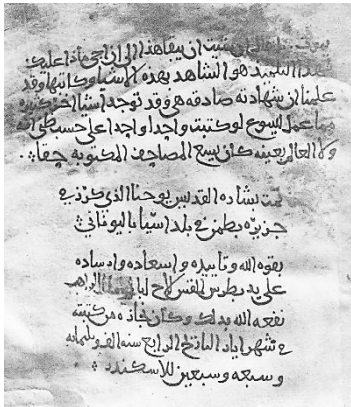 ان شيت ان يبقا هذا الى ان اجي ماذا عليك
فهذا التلميذ هو الشاهد بهذه الاشيا وكاتبها وقد
علمنا ان شهادته صادقه هي وقد توجد اشيا اخر كثيره
مما عمل ليسوع لو كتبت واحدا واحدا على حسب ظني انه
ولا العالم بعينه كان يسع المصاحف المكتوبه حقا
تمت بشاره القديس يوحنا الذي كرز في
جزيره بطمز في بلد اسيا باليوناني
بقوه الله وتاييده واسعاده وارشاده
على يد بطرس القس
نفعه الله بذلك وكان من كتبته
في شهر اياد التاريخ الرابع سنه الف وثلثمايه
وسبعه وسبعين للاسكندر